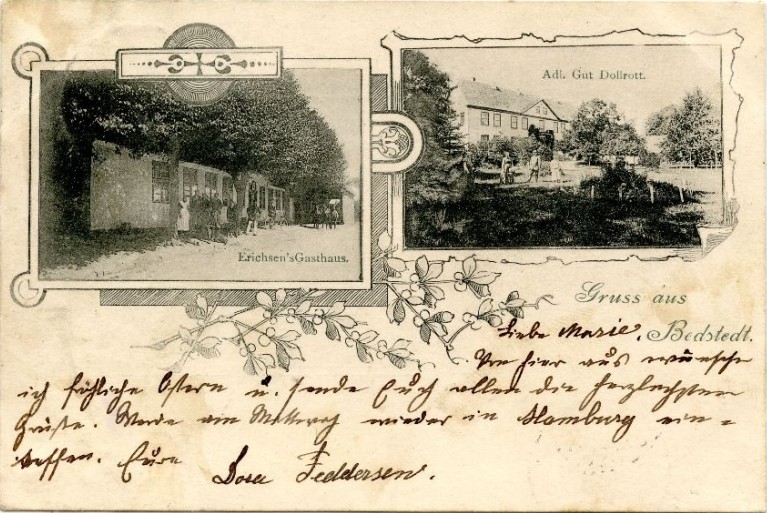 Adl. Gut Dollrott.
Erichsen's Gasthaus.
Gruss aus
Bedstedt.
Liebe Marie,
Von hier aus wünsche
ich fröhliche Ostern u. sende Euch allen die herzlichsten
Grüße. Werde am Mittwoch wieder in Hamburg ein-
treffen. Eure
Dora Feddersen.